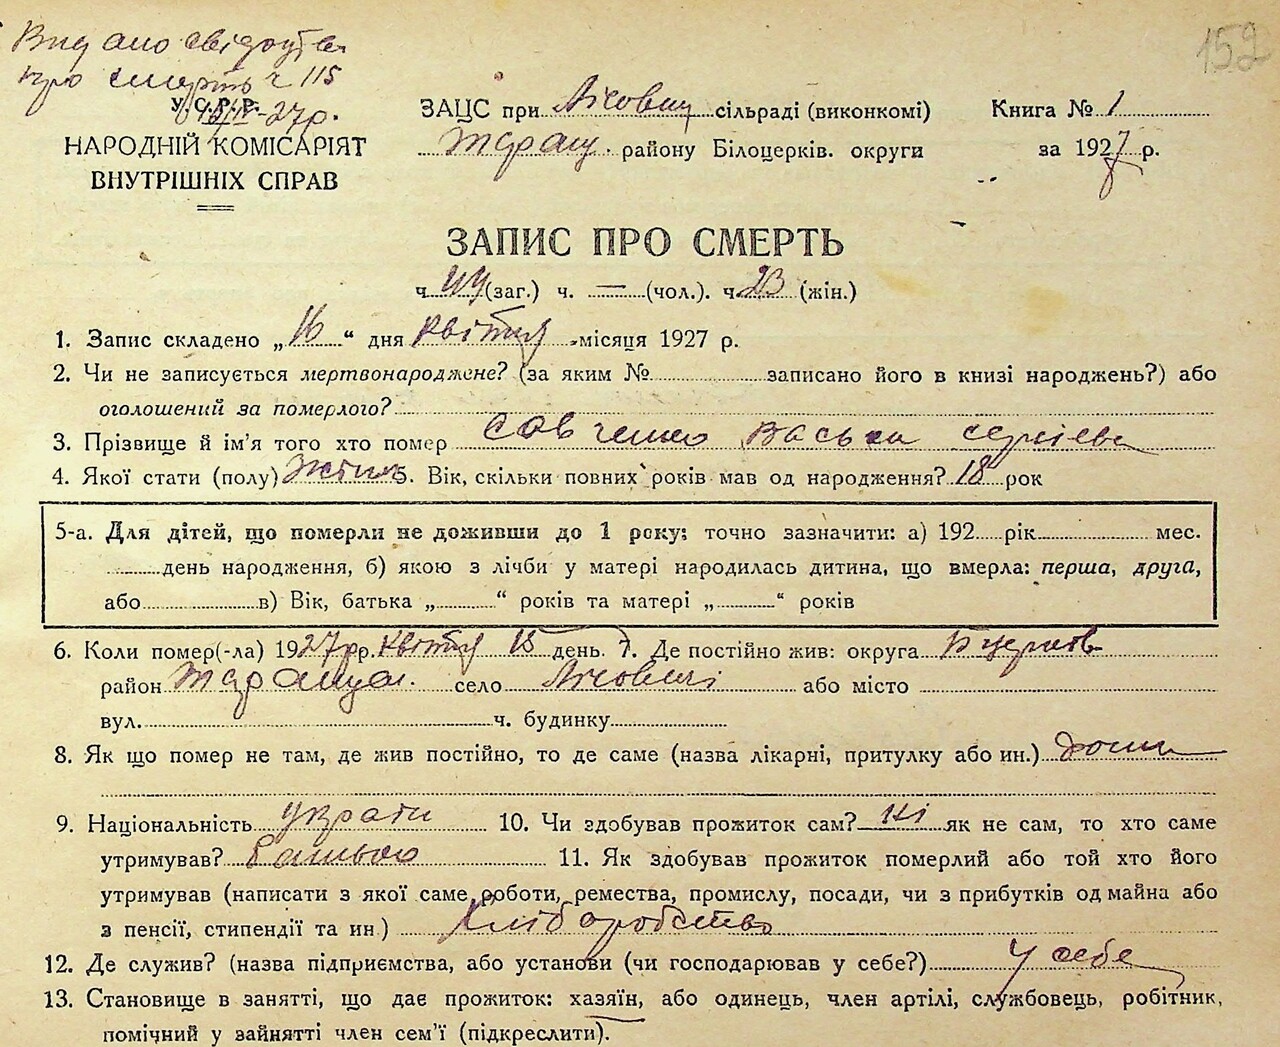 Видано свідоцтво
про смерть ч 115
152
У.С.Р.Р.
-27р.
НАРОДНІЙ КОМІСАРІЯТ
ВНУТРІШНІХ СПРАВ
ЗАЦС при Лісович сільраді (виконкомі)
Таращ. району Білоцерків. округи
Книга № 1
за 1927 р.
ЗАПИС ПРО СМЕРТЬ
ч. 44 (заг.) ч. — (чол.). ч. 23 (жін.)
1. Запис складено „16“ дня квітня місяця 1927 р.
2. Чи не записується мертвонароджене? (за яким № записано його в книзі народжень?) або
оголошений за померлого?
3. Прізвище й ім'я того хто помер Савченко Васька
4. Якої стати (полу) Жіноч 5. Вік, скільки повних років мав од народження? 18 рок
5-а. Для дітей, що померли не доживши до 1 року; точно зазначити: а) 192 рік мес.
день народження, б) якою з лічби у матері народилась дитина, що вмерла: перша, друга,
або в) Вік, батька „ “ років та матері „ “ років
6. Коли помер(-ла) 1927р р. квітня 15 день. 7. Де постійно жив: округа Б церков
район Таращан. село Лісовичі або місто
вул. ч. будинку
8. Як що помер не там, де жив постійно, то де саме (назва лікарні, притулку або ин.) дома
9. Національність україн 10. Чи здобував прожиток сам? ні як не сам, то хто саме
утримував? батько 11. Як здобував прожиток померлий або той хто його
утримував (написати з якої саме роботи, ремества, промислу, посади, чи з прибутків од майна або
з пенсії, стипендії та ин.) Хліборобство
12. Де служив? (назва підприємства, або установи (чи господарював у себе?) У себе
13. Становище в занятті, що дає прожиток: хазяїн, або одинець, член артілі, службовець, робітник,
помічний у зайнятті член сем'ї (підкреслити).